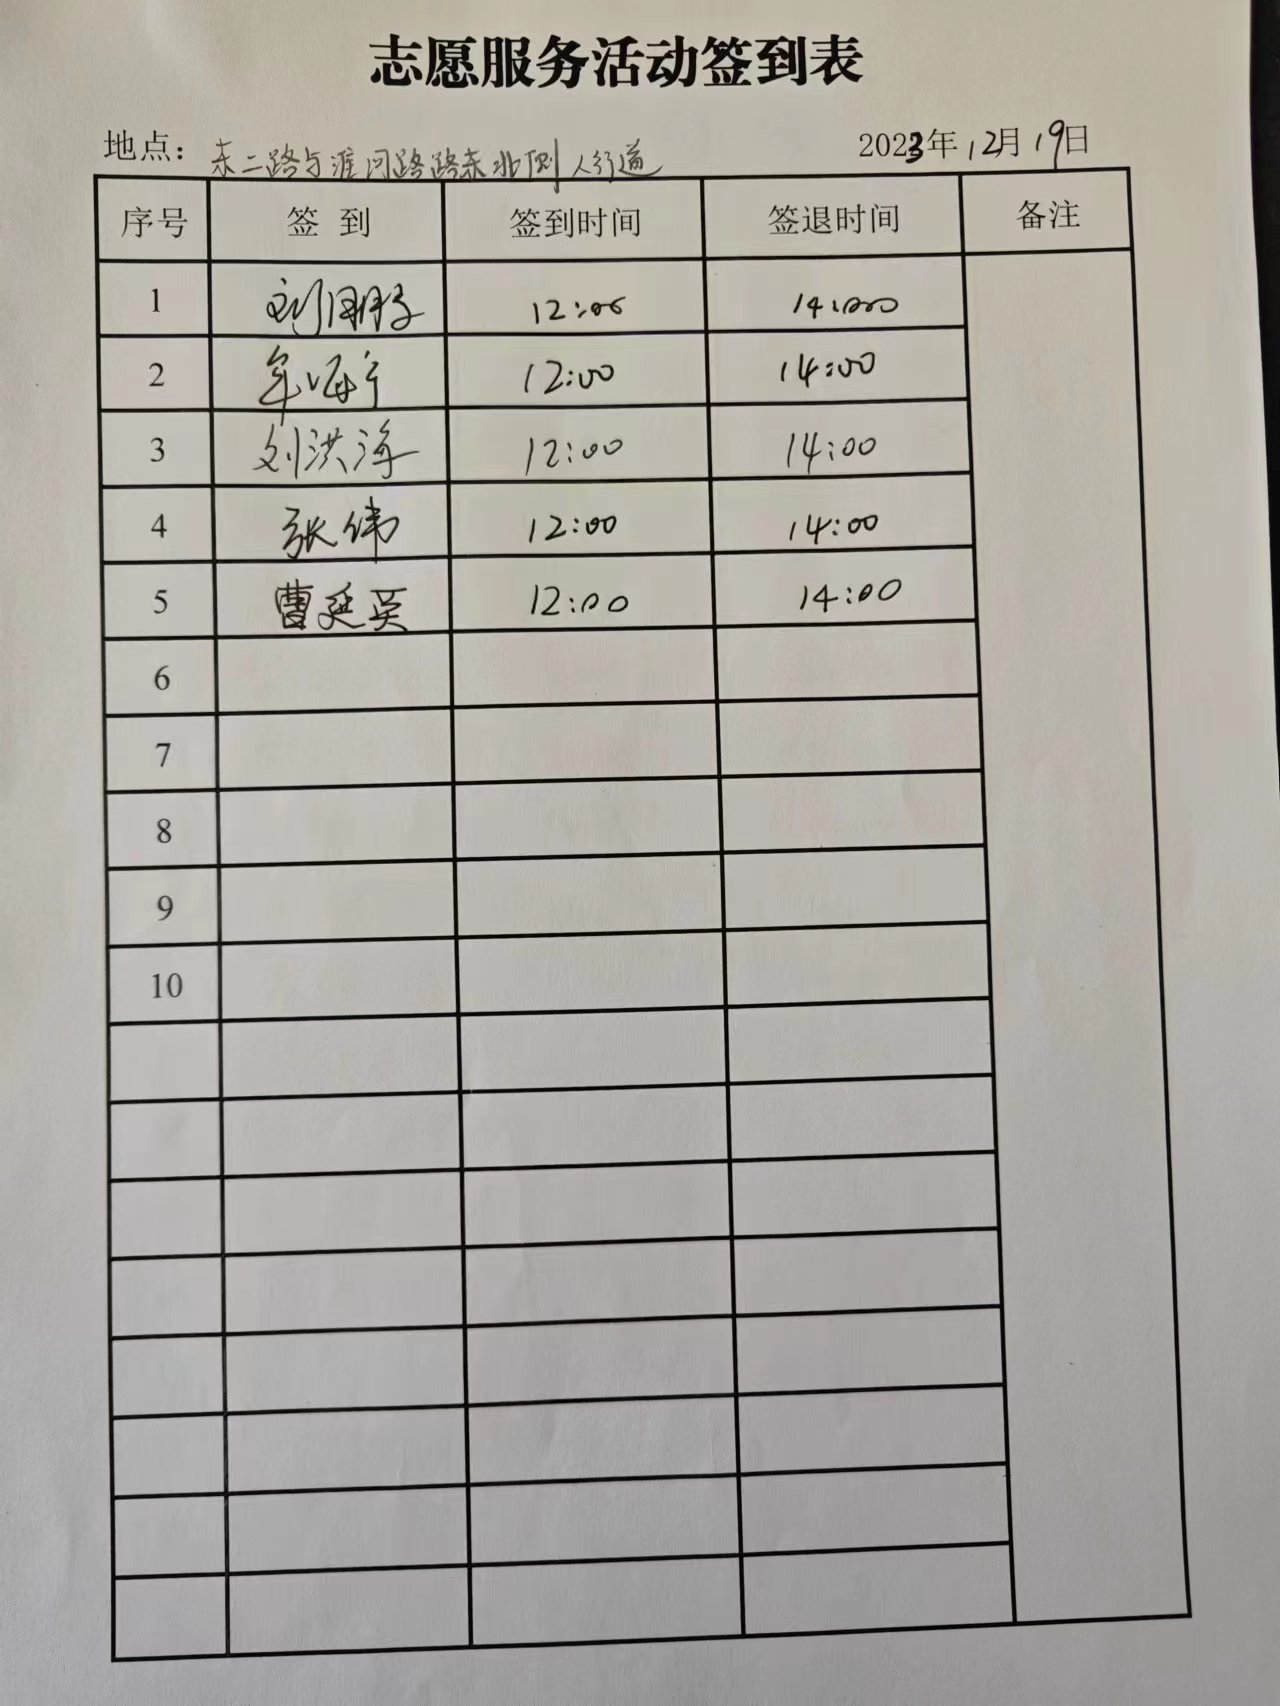 志愿服务活动签到表
地点：东二路与淮河路路东北侧人行道 2023年12月19日
序号 签到 签到时间 签退时间 备注
1 12:00 14:00
2 12:00 14:00
3 刘洪海 12:00 14:00
4 张伟 12:00 14:00
5 曹廷英 12:00 14:00
6
7
8
9
10